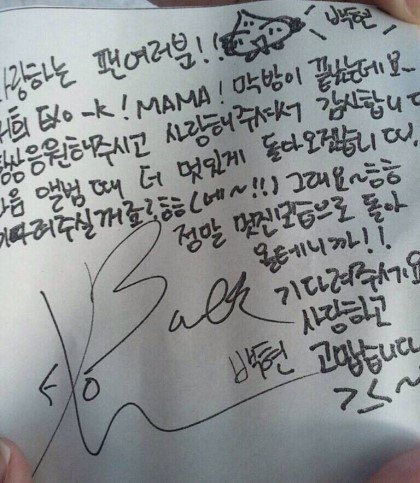 사랑하는 팬여러분!! 백현
저희 EXO-K! MAMA! 막방이 끝났는데요~
항상 응원해주시고 사랑해주셔서 감사합니다
다음 앨범 때 더 멋있게 돌아오겠습니다.
기다려주실꺼죠? 흠흠(네~!!) 그래요~흠흠
정말 멋진모습으로 돌아
올테니까!!
기다려주세요
사랑하고
백현 고맙습니다
>_<~
Baek